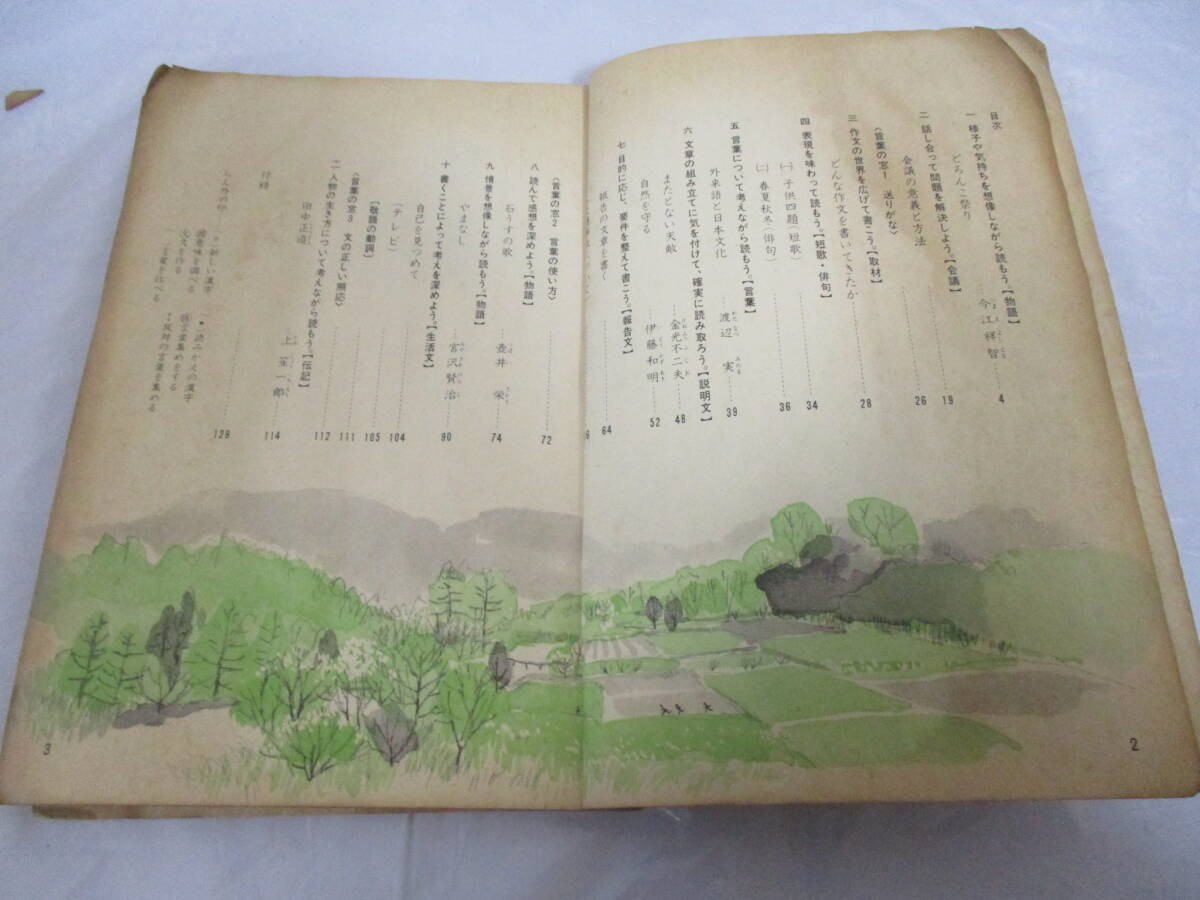 目次
一 様子や気持ちを想像しながら読もう。【物語】
どろんこ祭り 今江祥智 4
二 話し合って問題を解決しよう。【会議】
会議の意義と方法 19
〈言葉の窓1 送りがな〉 26
三 作文の世界を広げて書こう。【取材】
どんな作文を書いてきたか 28
四 表現を味わって読もう。【短歌・俳句】 34
(一) 子供四題(短歌)
(二) 春夏秋冬(俳句) 36
五 言葉について考えながら読もう。【言葉】
外来語と日本文化 渡辺 実 39
六 文章の組み立てに気を付けて、確実に読み取ろう。【説明文】
またとない天敵 金光不二夫 48
自然を守る 伊藤和明 52
七 目的に応じ、要件を整えて書こう。【報告文】
報告の文章を書く 64
〈言葉の窓2 言葉の使い方〉
八 読んで感想を深めよう。【物語】 72
石うすの歌 壺井 栄 74
九 情景を想像しながら読もう。【物語】
やまなし 宮沢賢治 90
十 書くことによって考えを深めよう。【生活文】
自己を見つめて 104
(テレビ) 105
【敬語の動詞】
〈言葉の窓3 文の正しい照応〉 111
112
人物の生き方について考えながら読もう。【伝記】
田中正造 上 一郎 114
付録
129
新しい漢字
読みかえの漢字
意味を調べる
言葉集めをする
文を作る
言葉を比べる
反対の言葉を集める
3
2